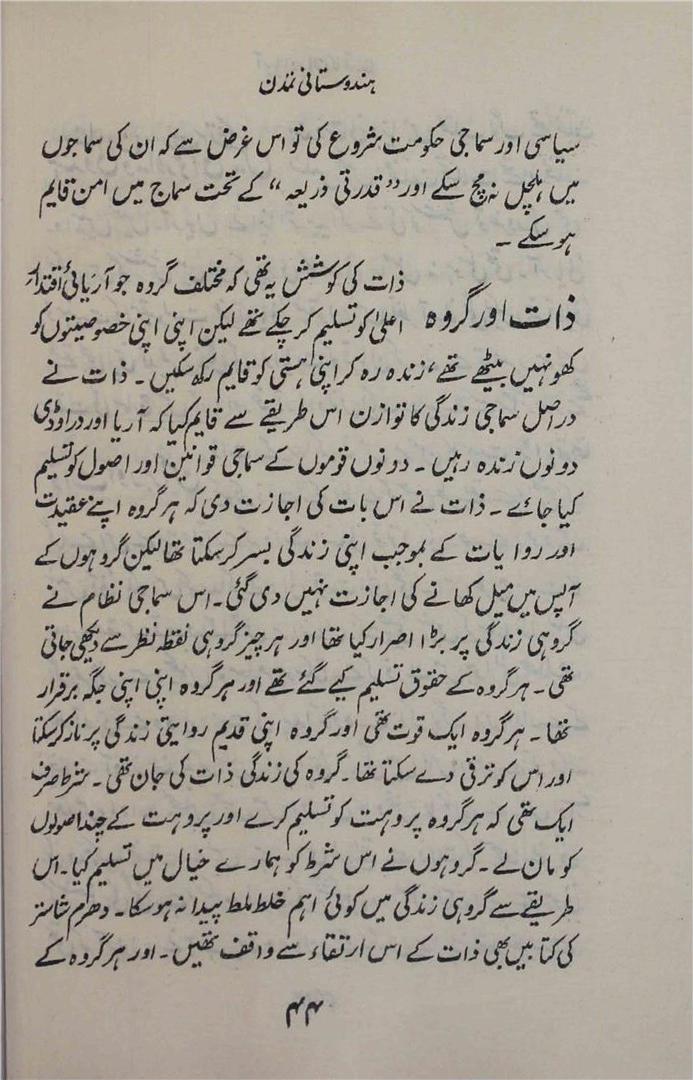 ہندوستانی تمدن
سیاسی اور سماجی حکومت شروع کی تو اس غرض سے کہ ان کی سماجوں
میں ہلچل نہ مچ سکے اور ”قدرتی ذریعہ“ کے تحت سماج میں امن قایم
ہو سکے ۔
ذات کی کوشش یہ تھی کہ مختلف گروہ جو آریائی اقتدار
ذات اور گروہ
اعلیٰ کو تسلیم کر چکے تھے لیکن اپنی اپنی خصوصیتوں کو
کھو نہیں بیٹھے تھے، زندہ رہ کر اپنی ہستی کو قایم رکھ سکیں ۔ ذات نے
در اصل سماجی زندگی کا توازن اس طریقے سے قایم کیا کہ آریا اور دراوڈی
دونوں زندہ رہیں ۔ دونوں قوموں کے سماجی قوانین اور اصول کو تسلیم
کیا جائے ۔ ذات نے اس بات کی اجازت دی کہ ہر گروہ اپنے عقیدت
اور روایات کے بموجب اپنی زندگی بسر کر سکتا تھا لیکن گروہوں کے
آپس میں میل کھانے کی اجازت نہیں دی گئی ۔ اس سماجی نظام نے
گروہی زندگی پر بڑا اصرار کیا تھا اور ہر چیز گروہی نقطہ نظر سے دیکھی جاتی
تھی ۔ ہر گروہ کے حقوق تسلیم کیے گئے تھے اور ہر گروہ اپنی اپنی جگہ برقرار
تھا ۔ ہر گروہ ایک قوت تھی اور گروہ اپنی قدیم روایتی زندگی پر ناز کر سکتا
اور اس کو ترقی دے سکتا تھا ۔ گروہ کی زندگی ذات کی جان تھی ۔ شرط صرف
ایک تھی کہ ہر گروہ پروہت کو تسلیم کرے اور پروہت کے چند اصولوں
کو مان لے ۔ گروہوں نے اس شرط کو ہمارے خیال میں تسلیم کیا ۔ اس
طریقے سے گروہی زندگی میں کوئی اہم خلط ملط پیدا نہ ہو سکا ۔ دھرم شاستر
کی کتابیں بھی ذات کے اس ارتقاء سے واقف تھیں ۔ اور ہر گروہ کے
۴۴